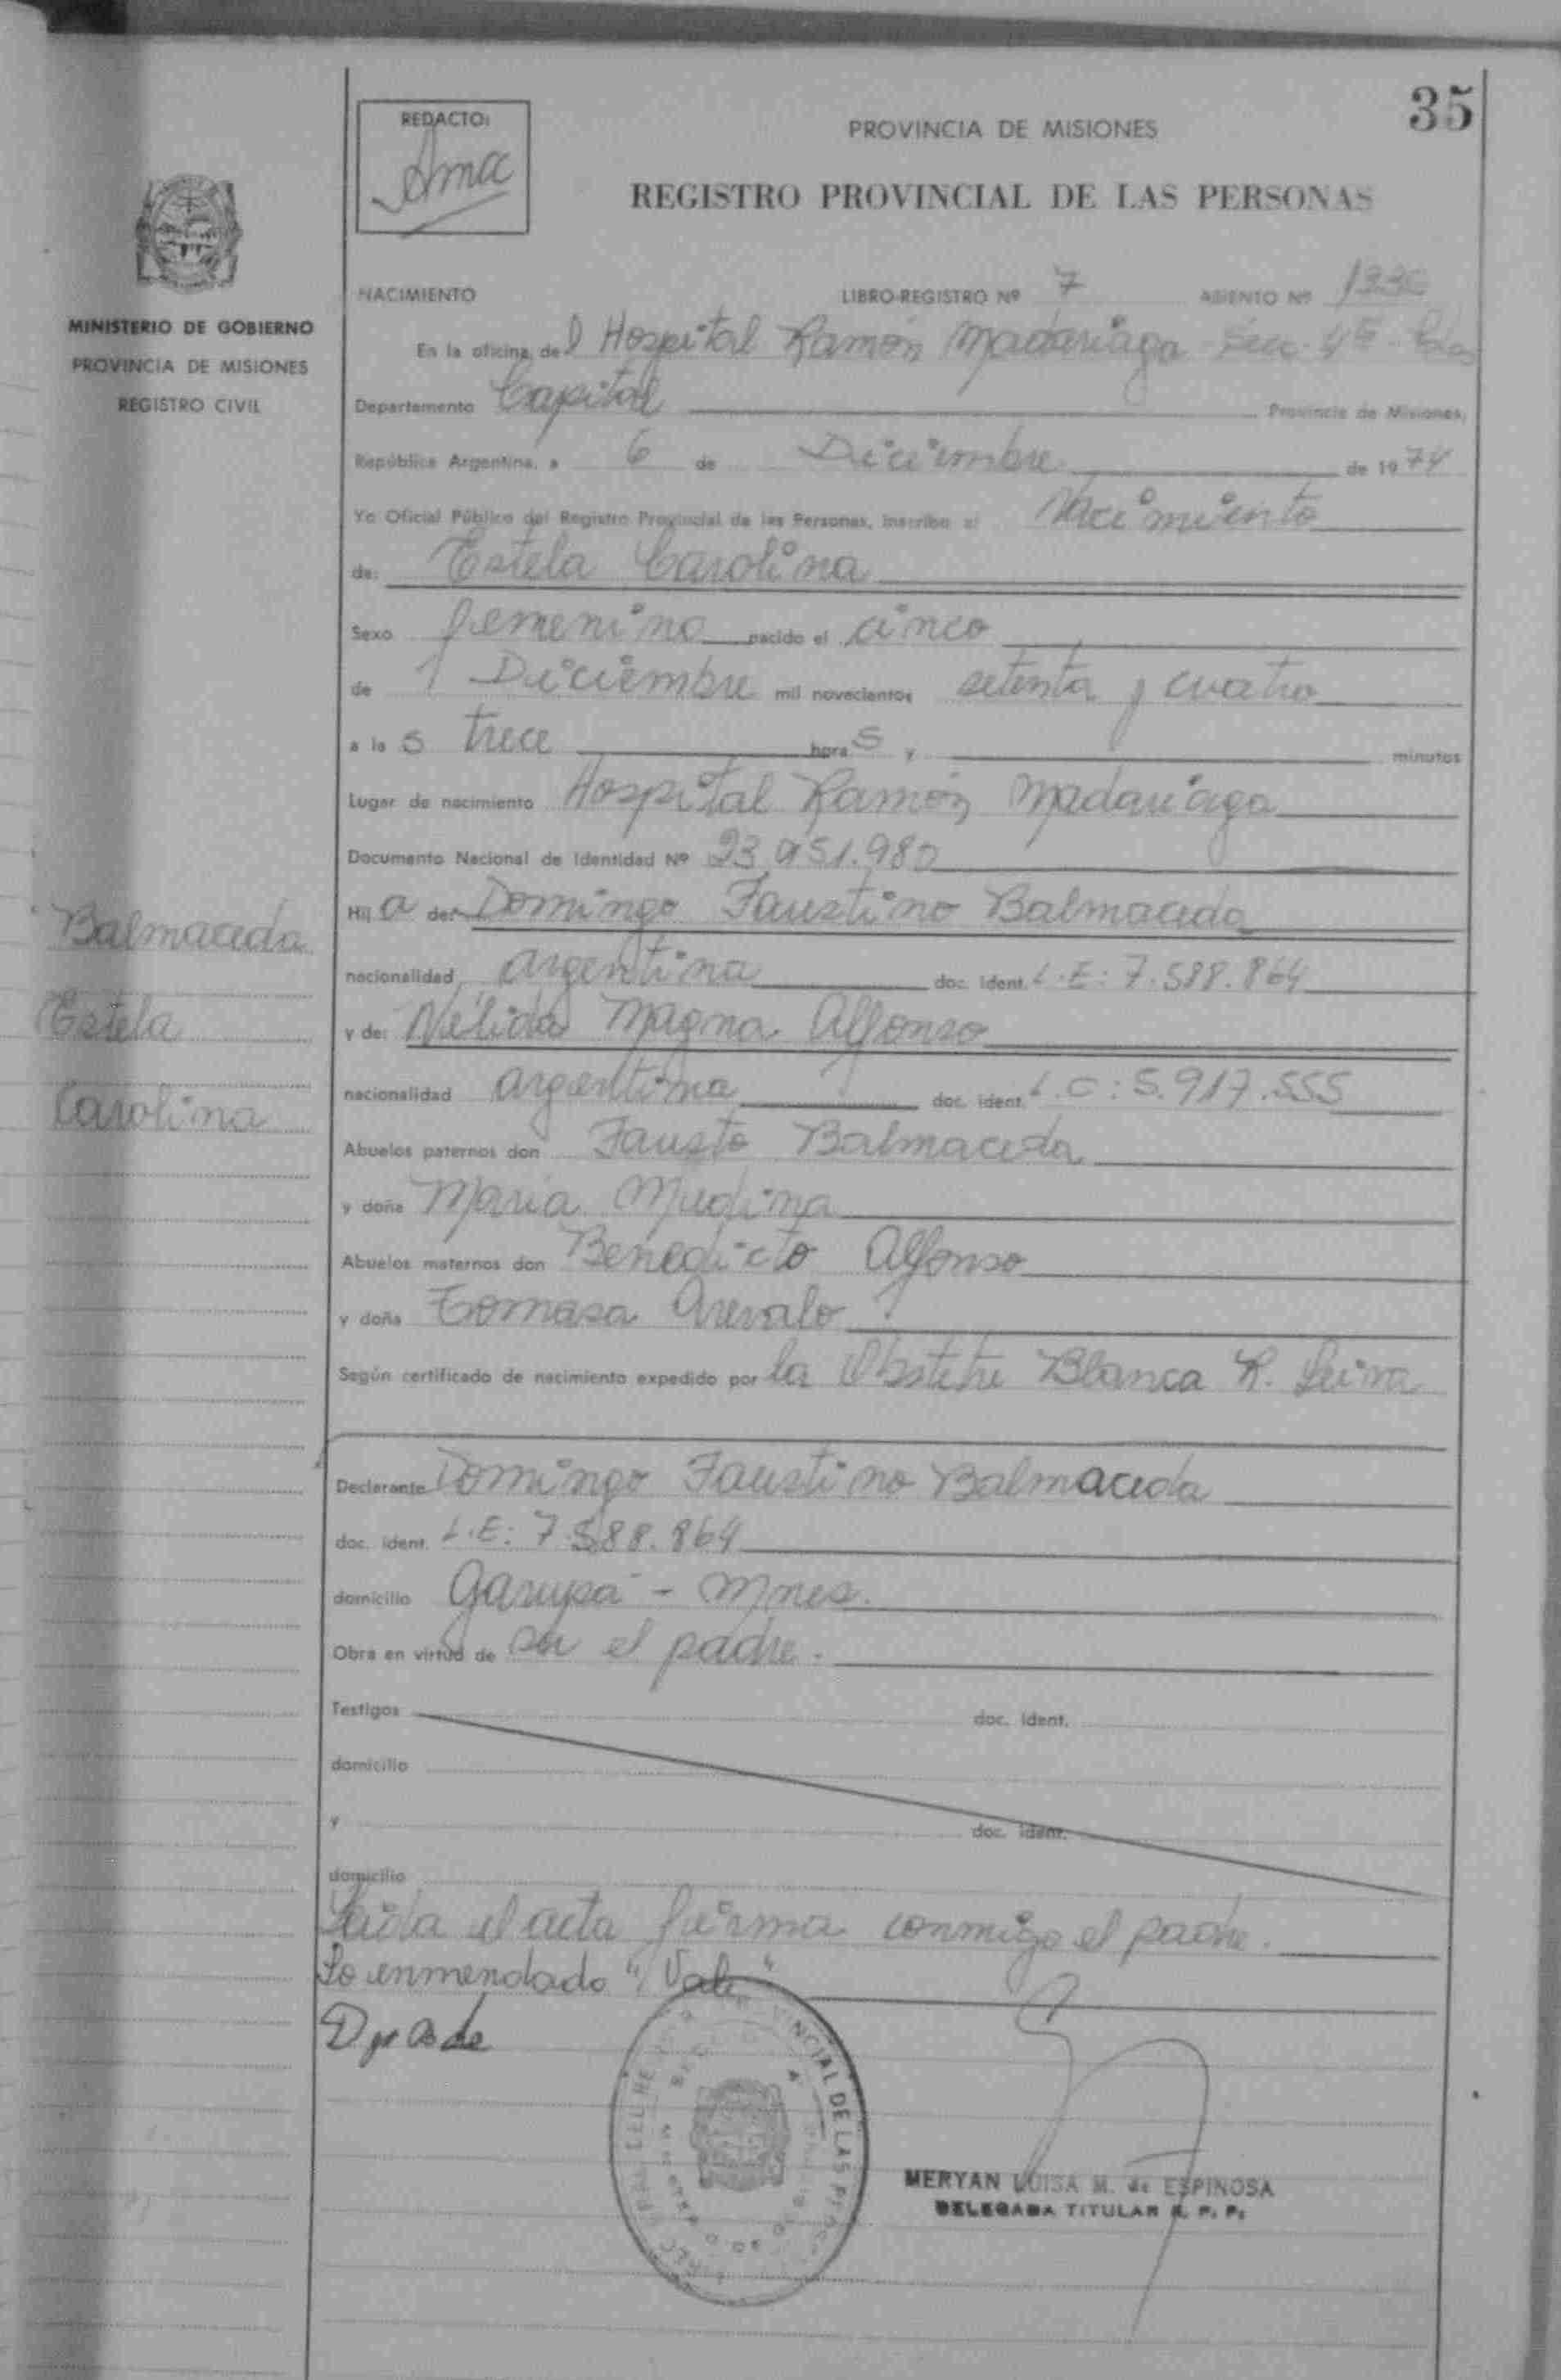 35
REDACTO:
Ama
PROVINCIA DE MISIONES
REGISTRO PROVINCIAL DE LAS PERSONAS
MINISTERIO DE GOBIERNO
PROVINCIA DE MISIONES
REGISTRO CIVIL
NACIMIENTO LIBRO-REGISTRO Nº 7 ASIENTO Nº
En la oficina del Hospital Ramón Madariaga Secc. 4ª
Departamento Capital Provincia de Misiones,
República Argentina, a 6 de Diciembre de 1974
Yo Oficial Público del Registro Provincial de las Personas, inscribo el Nacimiento
de: Estela Carolina
Sexo femenino nacido el cinco
de Diciembre mil novecientos setenta y cuatro
a las trece horas y minutos
Lugar de nacimiento Hospital Ramón Madariaga
Documento Nacional de Identidad Nº 23.951.980
Hija de: Domingo Faustino Balmaceda
nacionalidad argentina doc. ident. L.E: 7.588.864
y de: Nélida Magna Alfonso
nacionalidad argentina doc. ident. L.C: 5.917.555
Abuelos paternos don Fausto Balmaceda
y doña Maria Medina
Abuelos maternos don Benedicto Alfonso
y doña Tomasa Arevalo
Según certificado de nacimiento expedido por la Obstetre Blanca R. Leiva
Balmaceda
Estela
Carolina
Declarante Domingo Faustino Balmaceda
doc. ident. L.E: 7.588.864
domicilio Garupá - Mnes.
Obra en virtud de ser el padre.
Testigos doc. ident.
domicilio
y doc. ident.
domicilio
Leida el acta firma conmigo el padre.
Lo enmendado "Vale"
VINCIAL DE LAS
MERYAN LUISA M. de ESPINOSA
DELEGADA TITULAR R. P. P.